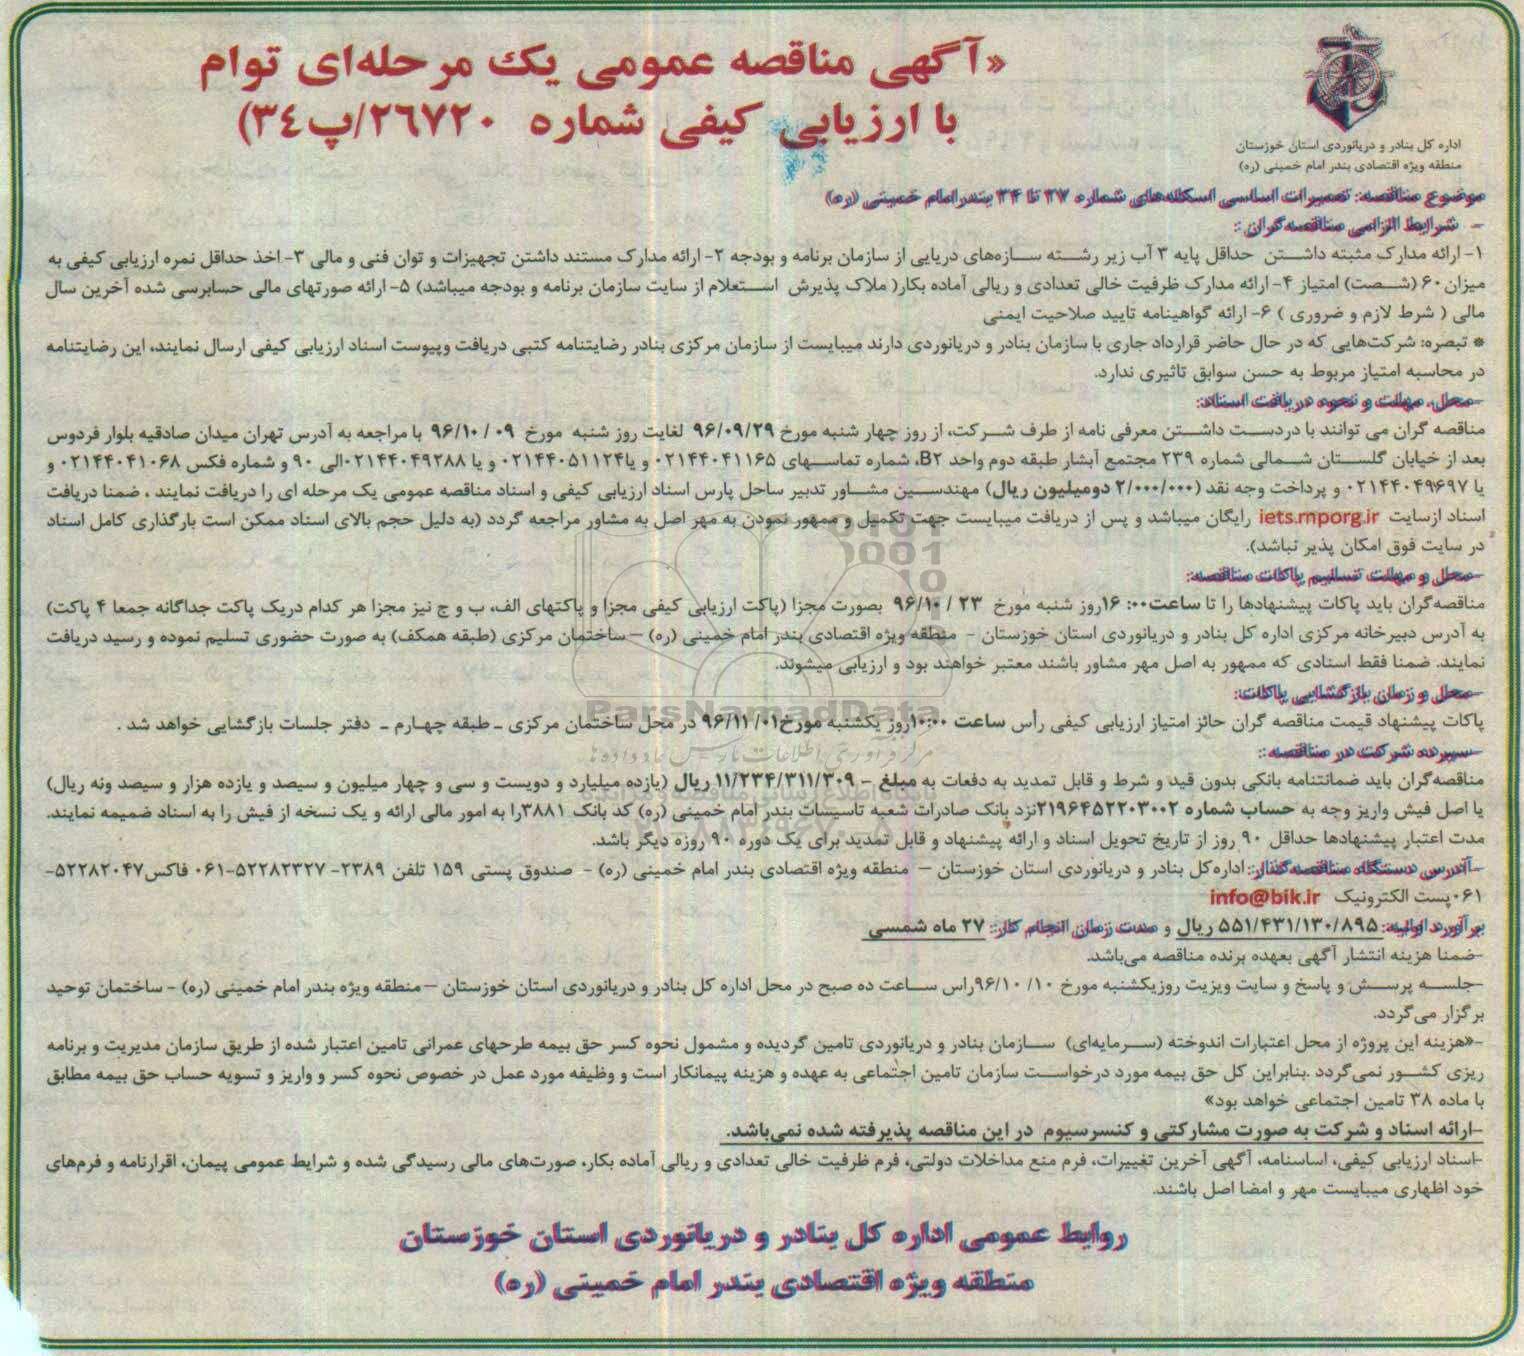 «آگهی مناقصه عمومی یک مرحله‌ای توام
با ارزیابی کیفی شماره ۲۶۷۲۰/پ۳٤)
اداره کل بنادر و دریانوردی استان خوزستان
منطقه ویژه اقتصادی بندر امام خمینی (ره)
موضوع مناقصه: تعمیرات اساسی اسکله‌های شماره ۲۷ تا ۳۴ بندر امام خمینی (ره)
- شرایط الزامی مناقصه‌گران :
۱- ارائه مدارک مثبته داشتن حداقل پایه ۳ آب زیر رشته سازه‌های دریایی از سازمان برنامه و بودجه ۲- ارائه مدارک مستند داشتن تجهیزات و توان فنی و مالی ۳- اخذ حداقل نمره ارزیابی کیفی به
میزان۶۰ (شصت) امتیاز ۴- ارائه مدارک ظرفیت خالی تعدادی و ریالی آماده بکار( ملاک پذیرش استعلام از سایت سازمان برنامه و بودجه میباشد) ۵- ارائه صورتهای مالی حسابرسی شده آخرین سال
مالی ( شرط لازم و ضروری ) ۶- ارائه گواهینامه تایید صلاحیت ایمنی
* تبصره: شرکت‌هایی که در حال حاضر قرارداد جاری با سازمان بنادر و دریانوردی دارند میبایست از سازمان مرکزی بنادر رضایتنامه کتبی دریافت وپیوست اسناد ارزیابی کیفی ارسال نمایند، این رضایتنامه
در محاسبه امتیاز مربوط به حسن سوابق تاثیری ندارد.
-محل، مهلت و نحوه دریافت اسناد:
مناقصه گران می توانند با دردست داشتن معرفی نامه از طرف شرکت، از روز چهار شنبه مورخ ۹۶/۰۹/۲۹ لغایت روز شنبه مورخ ۹۶/۱۰/۰۹ با مراجعه به آدرس تهران میدان صادقیه بلوار فردوس
بعد از خیابان گلستان شمالی شماره ۲۳۹ مجتمع آبشار طبقه دوم واحد B۲، شماره تماسهای ۰۲۱۴۴۰۴۱۱۶۵ و یا۰۲۱۴۴۰۵۱۱۲۴ و یا ۰۲۱۴۴۰۴۹۲۸۸الی ۹۰ و شماره فکس ۰۲۱۴۴۰۴۱۰۶۸ و
یا ۰۲۱۴۴۰۴۹۶۹۷ و پرداخت وجه نقد (۲/۰۰۰/۰۰۰ دومیلیون ریال) مهندسین مشاور تدبیر ساحل پارس اسناد ارزیابی کیفی و اسناد مناقصه عمومی یک مرحله ای را دریافت نمایند ، ضمنا دریافت
اسناد ازسایت iets.mporg.ir رایگان میباشد و پس از دریافت میبایست جهت تکمیل و ممهور نمودن به مهر اصل به مشاور مراجعه گردد (به دلیل حجم بالای اسناد ممکن است بارگذاری کامل اسناد
در سایت فوق امکان پذیر نباشد).
-محل و مهلت تسلیم پاکات مناقصه:
مناقصه‌گران باید پاکات پیشنهادها را تا ساعت۱۶:۰۰روز شنبه مورخ ۹۶/۱۰/۲۳ بصورت مجزا (پاکت ارزیابی کیفی مجزا و پاکتهای الف، ب و ج نیز مجزا هر کدام دریک پاکت جداگانه جمعا ۴ پاکت)
به آدرس دبیرخانه مرکزی اداره کل بنادر و دریانوردی استان خوزستان - منطقه ویژه اقتصادی بندر امام خمینی (ره) –ساختمان مرکزی (طبقه همکف) به صورت حضوری تسلیم نموده و رسید دریافت
نمایند. ضمنا فقط اسنادی که ممهور به اصل مهر مشاور باشند معتبر خواهند بود و ارزیابی میشوند.
-محل و زمان بازگشایی پاکات:
پاکات پیشنهاد قیمت مناقصه گران حائز امتیاز ارزیابی کیفی رأس ساعت ۱۰:۰۰روز یکشنبه مورخ۹۶/۱۱/۰۱ در محل ساختمان مرکزی ـ طبقه چهارم ـ دفتر جلسات بازگشایی خواهد شد .
-سپرده شرکت در مناقصه :
مناقصه‌گران باید ضمانتنامه بانکی بدون قید و شرط و قابل تمدید به دفعات به مبلغ – ۱۱/۲۳۴/۳۱۱/۳۰۹ ریال (یازده میلیارد و دویست و سی و چهار میلیون و سیصد و یازده هزار و سیصد ونه ریال)
یا اصل فیش واریز وجه به حساب شماره ۲۱۹۶۴۵۲۲۰۳۰۰۲نزد بانک صادرات شعبه تاسیسات بندر امام خمینی (ره) کد بانک ۳۸۸۱را به امور مالی ارائه و یک نسخه از فیش را به اسناد ضمیمه نمایند.
مدت اعتبار پیشنهادها حداقل ۹۰ روز از تاریخ تحویل اسناد و ارائه پیشنهاد و قابل تمدید برای یک دوره ۹۰ روزه دیگر باشد.
-آدرس دستگاه مناقصه‌گذار: اداره‌کل بنادر و دریانوردی استان خوزستان – منطقه ویژه اقتصادی بندر امام خمینی (ره) - صندوق پستی ۱۵۹ تلفن ۲۳۸۹- ۵۲۲۸۲۳۲۷-۰۶۱ فاکس۵۲۲۸۲۰۴۷-
۰۶۱پست الکترونیک info@bik.ir
برآورد اولیه: ۵۵۱/۴۳۱/۱۳۰/۸۹۵ ریال و مدت زمان انجام کار: ۲۷ ماه شمسی
-ضمنا هزینه انتشار آگهی بعهده برنده مناقصه می‌باشد.
-جلسه پرسش و پاسخ و سایت ویزیت روزیکشنبه مورخ ۹۶/۱۰/۱۰راس ساعت ده صبح در محل اداره کل بنادر و دریانوردی استان خوزستان –منطقه ویژه بندر امام خمینی (ره) - ساختمان توحید
برگزار می‌گردد.
-«هزینه این پروژه از محل اعتبارات اندوخته (سرمایه‌ای) سازمان بنادر و دریانوردی تامین گردیده و مشمول نحوه کسر حق بیمه طرحهای عمرانی تامین اعتبار شده از طریق سازمان مدیریت و برنامه
ریزی کشور نمی‌گردد .بنابراین کل حق بیمه مورد درخواست سازمان تامین اجتماعی به عهده و هزینه پیمانکار است و وظیفه مورد عمل در خصوص نحوه کسر و واریز و تسویه حساب حق بیمه مطابق
با ماده ۳۸ تامین اجتماعی خواهد بود»
-ارائه اسناد و شرکت به صورت مشارکتی و کنسرسیوم در این مناقصه پذیرفته شده نمی‌باشد.
-اسناد ارزیابی کیفی، اساسنامه، آگهی آخرین تغییرات، فرم منع مداخلات دولتی، فرم ظرفیت خالی تعدادی و ریالی آماده بکار، صورت‌های مالی رسیدگی شده و شرایط عمومی پیمان، اقرارنامه و فرم‌های
خود اظهاری میبایست مهر و امضا اصل باشند.
روابط عمومی اداره کل بنادر و دریانوردی استان خوزستان
منطقه ویژه اقتصادی بندر امام خمینی (ره)
ParsNamadData